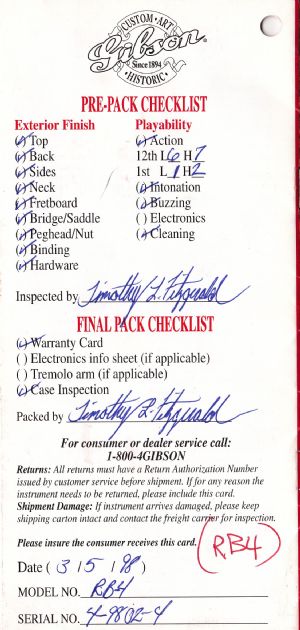 CUSTOM · ART
Gibson
Since 1894
HISTORIC
PRE-PACK CHECKLIST
Exterior Finish Playability
(✓) Top (✓) Action
(✓) Back 12th L 6 H 7
(✓) Sides 1st L 1 H 2
(✓) Neck (✓) Intonation
(✓) Fretboard (✓) Buzzing
(✓) Bridge/Saddle ( ) Electronics
(✓) Peghead/Nut (✓) Cleaning
(✓) Binding
(✓) Hardware
Inspected by Timothy L. Fitzgerald
FINAL PACK CHECKLIST
(✓) Warranty Card
( ) Electronics info sheet (if applicable)
( ) Tremolo arm (if applicable)
(✓) Case Inspection
Packed by Timothy L. Fitzgerald
For consumer or dealer service call:
1-800-4GIBSON
Returns: All returns must have a Return Authorization Number
issued by customer service before shipment. If for any reason the
instrument needs to be returned, please include this card.
Shipment Damage: If instrument arrives damaged, please keep
shipping carton intact and contact the freight carrier for inspection.
Please insure the consumer receives this card.
RB4
Date ( 3 / 5 / 98 )
MODEL NO. RB4
SERIAL NO. 4-9802-4